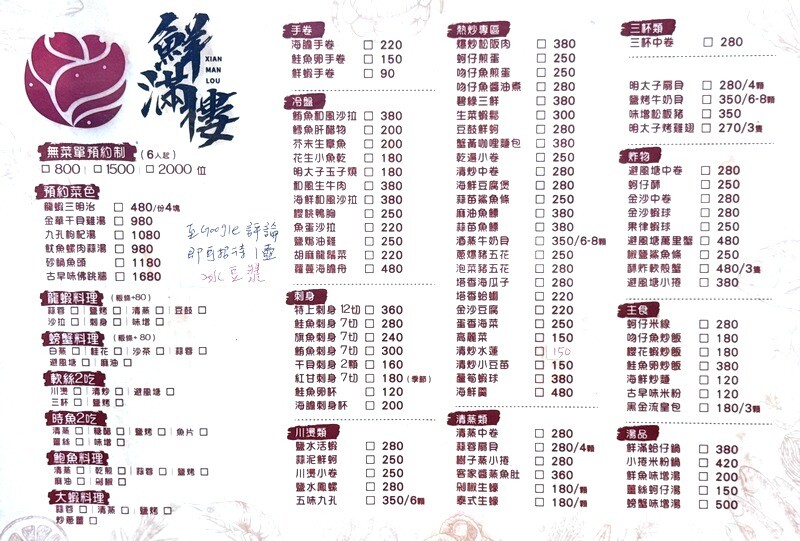 鮮滿樓
XIAN
MAN
LOU
無菜單預約制 (6人起)
□800 □1500 □2000 位
預約菜色
龍蝦三明治 □ 480/份4塊
金華干貝雞湯 □ 980
九孔枸杞湯 □ 1080
魷魚螺肉蒜湯 □ 980
砂鍋魚頭 □ 1180
古早味佛跳牆 □ 1680
至Google評論
即可招待1壺
冰豆漿
龍蝦料理 (粄條+80)
蒜蓉 □ 鹽烤 □ 清蒸 □ 豆鼓 □
沙拉 □ 刺身 □ 味增 □
螃蟹料理 (粄條+80)
白蒸 □ 桂花 □ 沙茶 □ 蒜蓉 □
避風塘 □ 麻油 □
軟絲2吃
川燙 □ 清炒 □ 避風塘 □
三杯 □ 鹽烤 □
時魚2吃
清蒸 □ 糖醋 □ 鹽烤 □ 魚片 □
薑絲 □ 味增 □
鮑魚料理
清蒸 □ 乾煎 □ 蒜蓉 □ 鹽烤 □
麻油 □ 剁椒 □
大蝦料理
蒜蓉 □ 清蒸 □ 鹽烤 □
炒蔥薑 □
手卷
海膽手卷 □ 220
鮭魚卵手卷 □ 150
鮮蝦手卷 □ 90
冷盤
鮪魚和風沙拉 □ 380
鱈魚肝醋物 □ 200
芥末生章魚 □ 200
花生小魚乾 □ 180
明太子玉子燒 □ 180
和風生牛肉 □ 380
海鮮和風沙拉 □ 380
櫻桃鴨胸 □ 250
魚蛋沙拉 □ 220
鹽焗油雞 □ 250
胡麻龍鬚菜 □ 220
蘿蔓海膽舟 □ 480
刺身
特上刺身 12切 □ 360
鮭魚刺身 7切 □ 280
旗魚刺身 7切 □ 240
鮪魚刺身 7切 □ 300
干貝刺身 2顆 □ 160
紅甘刺身 7切 □ 180 (季節)
鮭魚卵杯 □ 120
海膽刺身杯 □ 200
川燙類
鹽水活蝦 □ 280
蒜泥鮮蚵 □ 250
川燙小卷 □ 250
鹽水鳳螺 □ 280
五味九孔 □ 350/6顆
熱炒專區
爆炒松阪肉 □ 380
蚵仔煎蛋 □ 250
吻仔魚煎蛋 □ 250
吻仔魚醬油煮 □ 280
碧綠三鮮 □ 380
生菜蝦鬆 □ 300
豆鼓鮮蚵 □ 280
蟹黃咖哩麵包 □ 380
乾逼小卷 □ 250
清炒中卷 □ 280
海鮮豆腐煲 □ 280
蒜苗鯊魚條 □ 250
麻油魚鰾 □ 380
蒜苗魚鰾 □ 380
酒蒸牛奶貝 □ 350/6-8顆
蔥爆豬五花 □ 250
泡菜豬五花 □ 280
塔香海瓜子 □ 280
塔香蛤蜊 □ 220
金沙豆腐 □ 220
蛋香海菜 □ 250
高麗菜 □ 150
清炒水蓮 □ 150
清炒小豆苗 □ 150
蘆筍蝦球 □ 380
海鮮羹 □ 480
清蒸類
清蒸中卷 □ 280
蒜蓉扇貝 □ 280/4顆
樹子蒸小捲 □ 280
客家醬蒸魚肚 □ 360
剁椒生蠔 □ 180/顆
泰式生蠔 □ 180/顆
三杯類
三杯中卷 □ 280
明太子扇貝 □ 280/4顆
鹽烤牛奶貝 □ 350/6-8顆
味增松阪豬 □ 350
明太子烤雞翅 □ 270/3隻
炸物
避風塘中卷 □ 280
蚵仔酥 □ 250
金沙中卷 □ 280
金沙蝦球 □ 280
果律蝦球 □ 250
避風塘萬里蟹 □ 480
椒鹽鯊魚條 □ 250
酥炸軟殼蟹 □ 480/3隻
避風塘小捲 □ 380
主食
蚵仔米線 □ 280
吻仔魚炒飯 □ 180
櫻花蝦炒飯 □ 180
鮭魚卵炒飯 □ 380
海鮮炒麵 □ 120
古早味米粉 □ 120
黑金流皇包 □ 180/3顆
湯品
鮮滿蛤仔鍋 □ 380
小捲米粉鍋 □ 420
鮮魚味增湯 □ 200
薑絲蚵仔湯 □ 150
螃蟹味增湯 □ 500